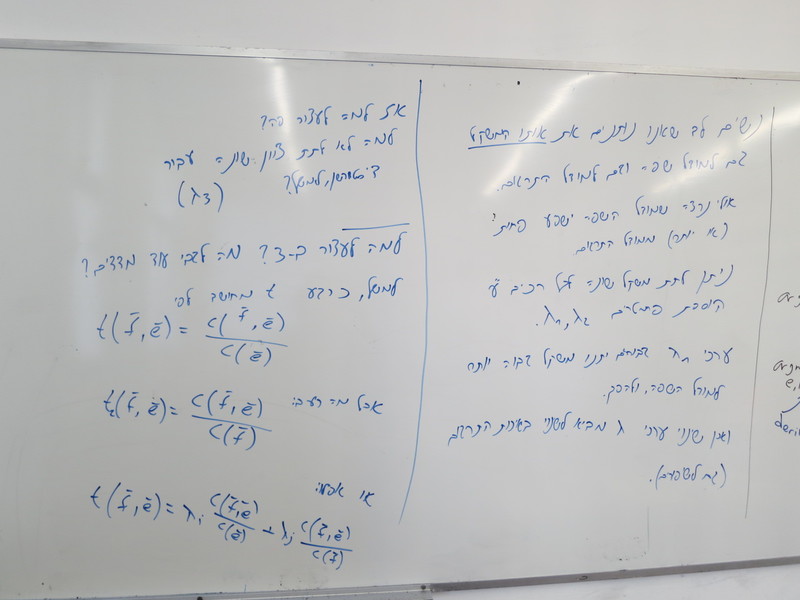 נשים לב שאנו נותנים את אותו המשקל
גם למודל שפה וגם למודל התרגום.
אולי נרצה שמודל השפה ישפע פחות?
(או יותר) ממודל התרגום
ניתן לתת משקל שונה לכל רכיב ע"י
הוספת פרמטרים λ₁, λ₂.
ערכי λ₁ גבוהים יתנו משקל גבוה יותר
למודל השפה, ולהפך.
ואכן שינוי ערכי λ מביא לשינוי באיכות התרגום
(גם לשיפורים).
אז למה לעצור פה?
למה לא לתת ציון שונה עבור
דיסטורשן, למשל?
(λ3)
למה לעצור ב-3? מה לגבי עוד מדדים?
למשל, כרגע t מחושב לפי
t(f̄,ē) = c(f̄,ē) / c(ē)
אבל מה רע ב:
t₂(f̄,ē) = c(f̄,ē) / c(f̄)
או אפילו
t(f̄,ē) = λᵢ c(f̄,ē) / c(ē) + λⱼ c(f̄,ē) / c(f̄)